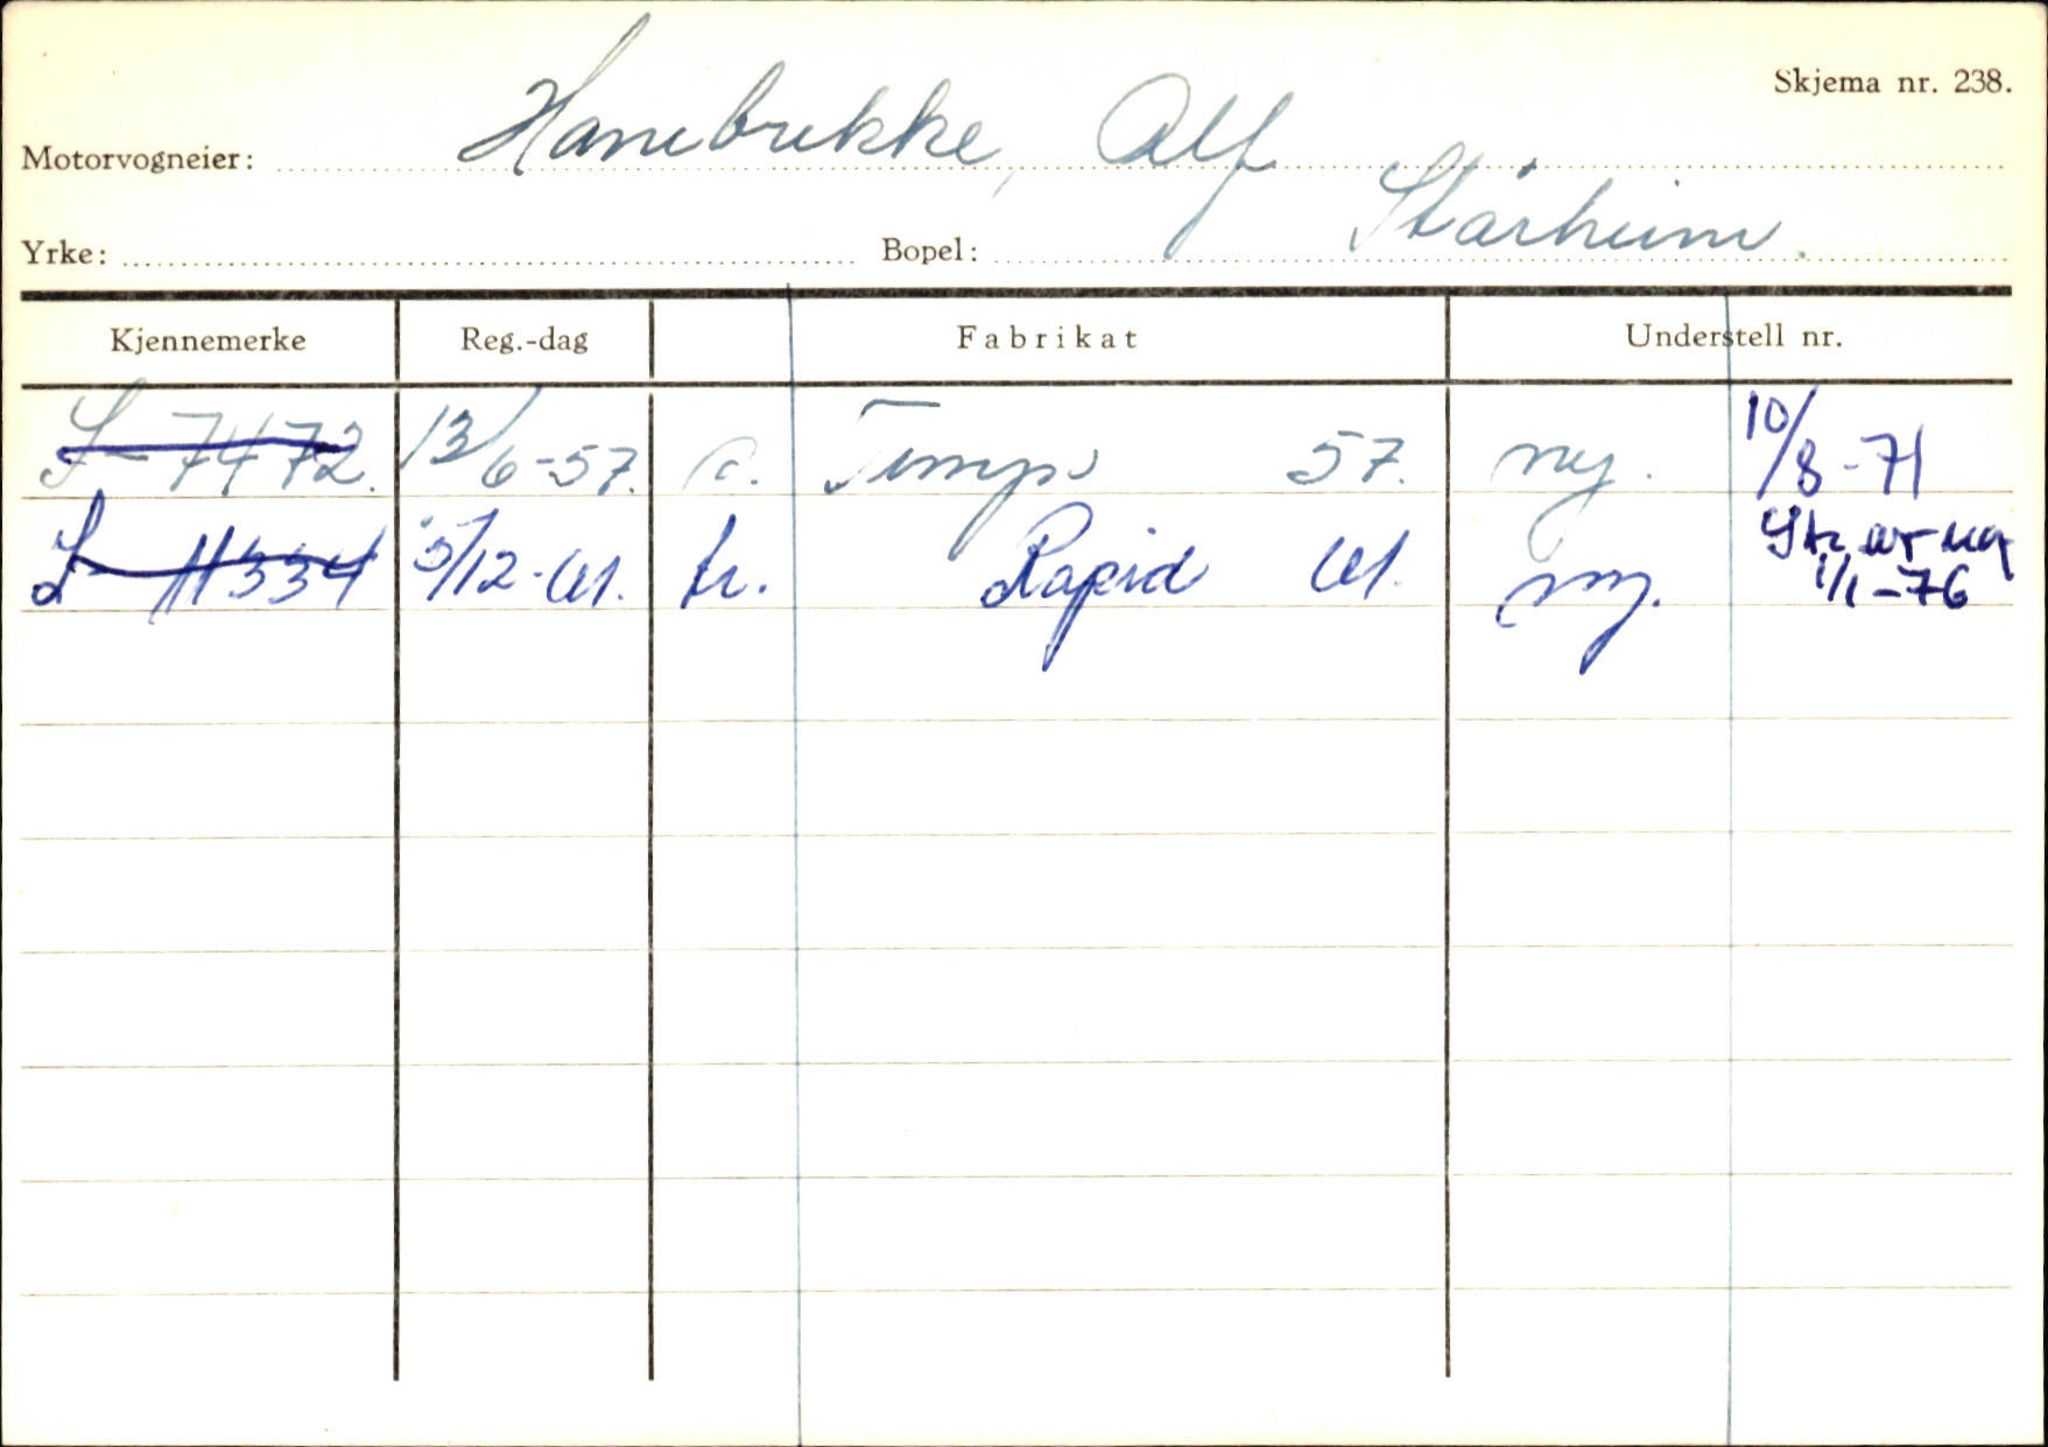 Skjema nr. 238.
Motorvogneier: Hanebrekke, Alf
Yrke: Bopel: Stårheim.
Kjennemerke Reg.-dag Fabrikat Understell nr.
S-7472. 13/6-57. c. Tempo 57. ny. 10/8-71
S-11334 5/12-61. tr. Rapid 61. ny. Str. av reg
1/1-76